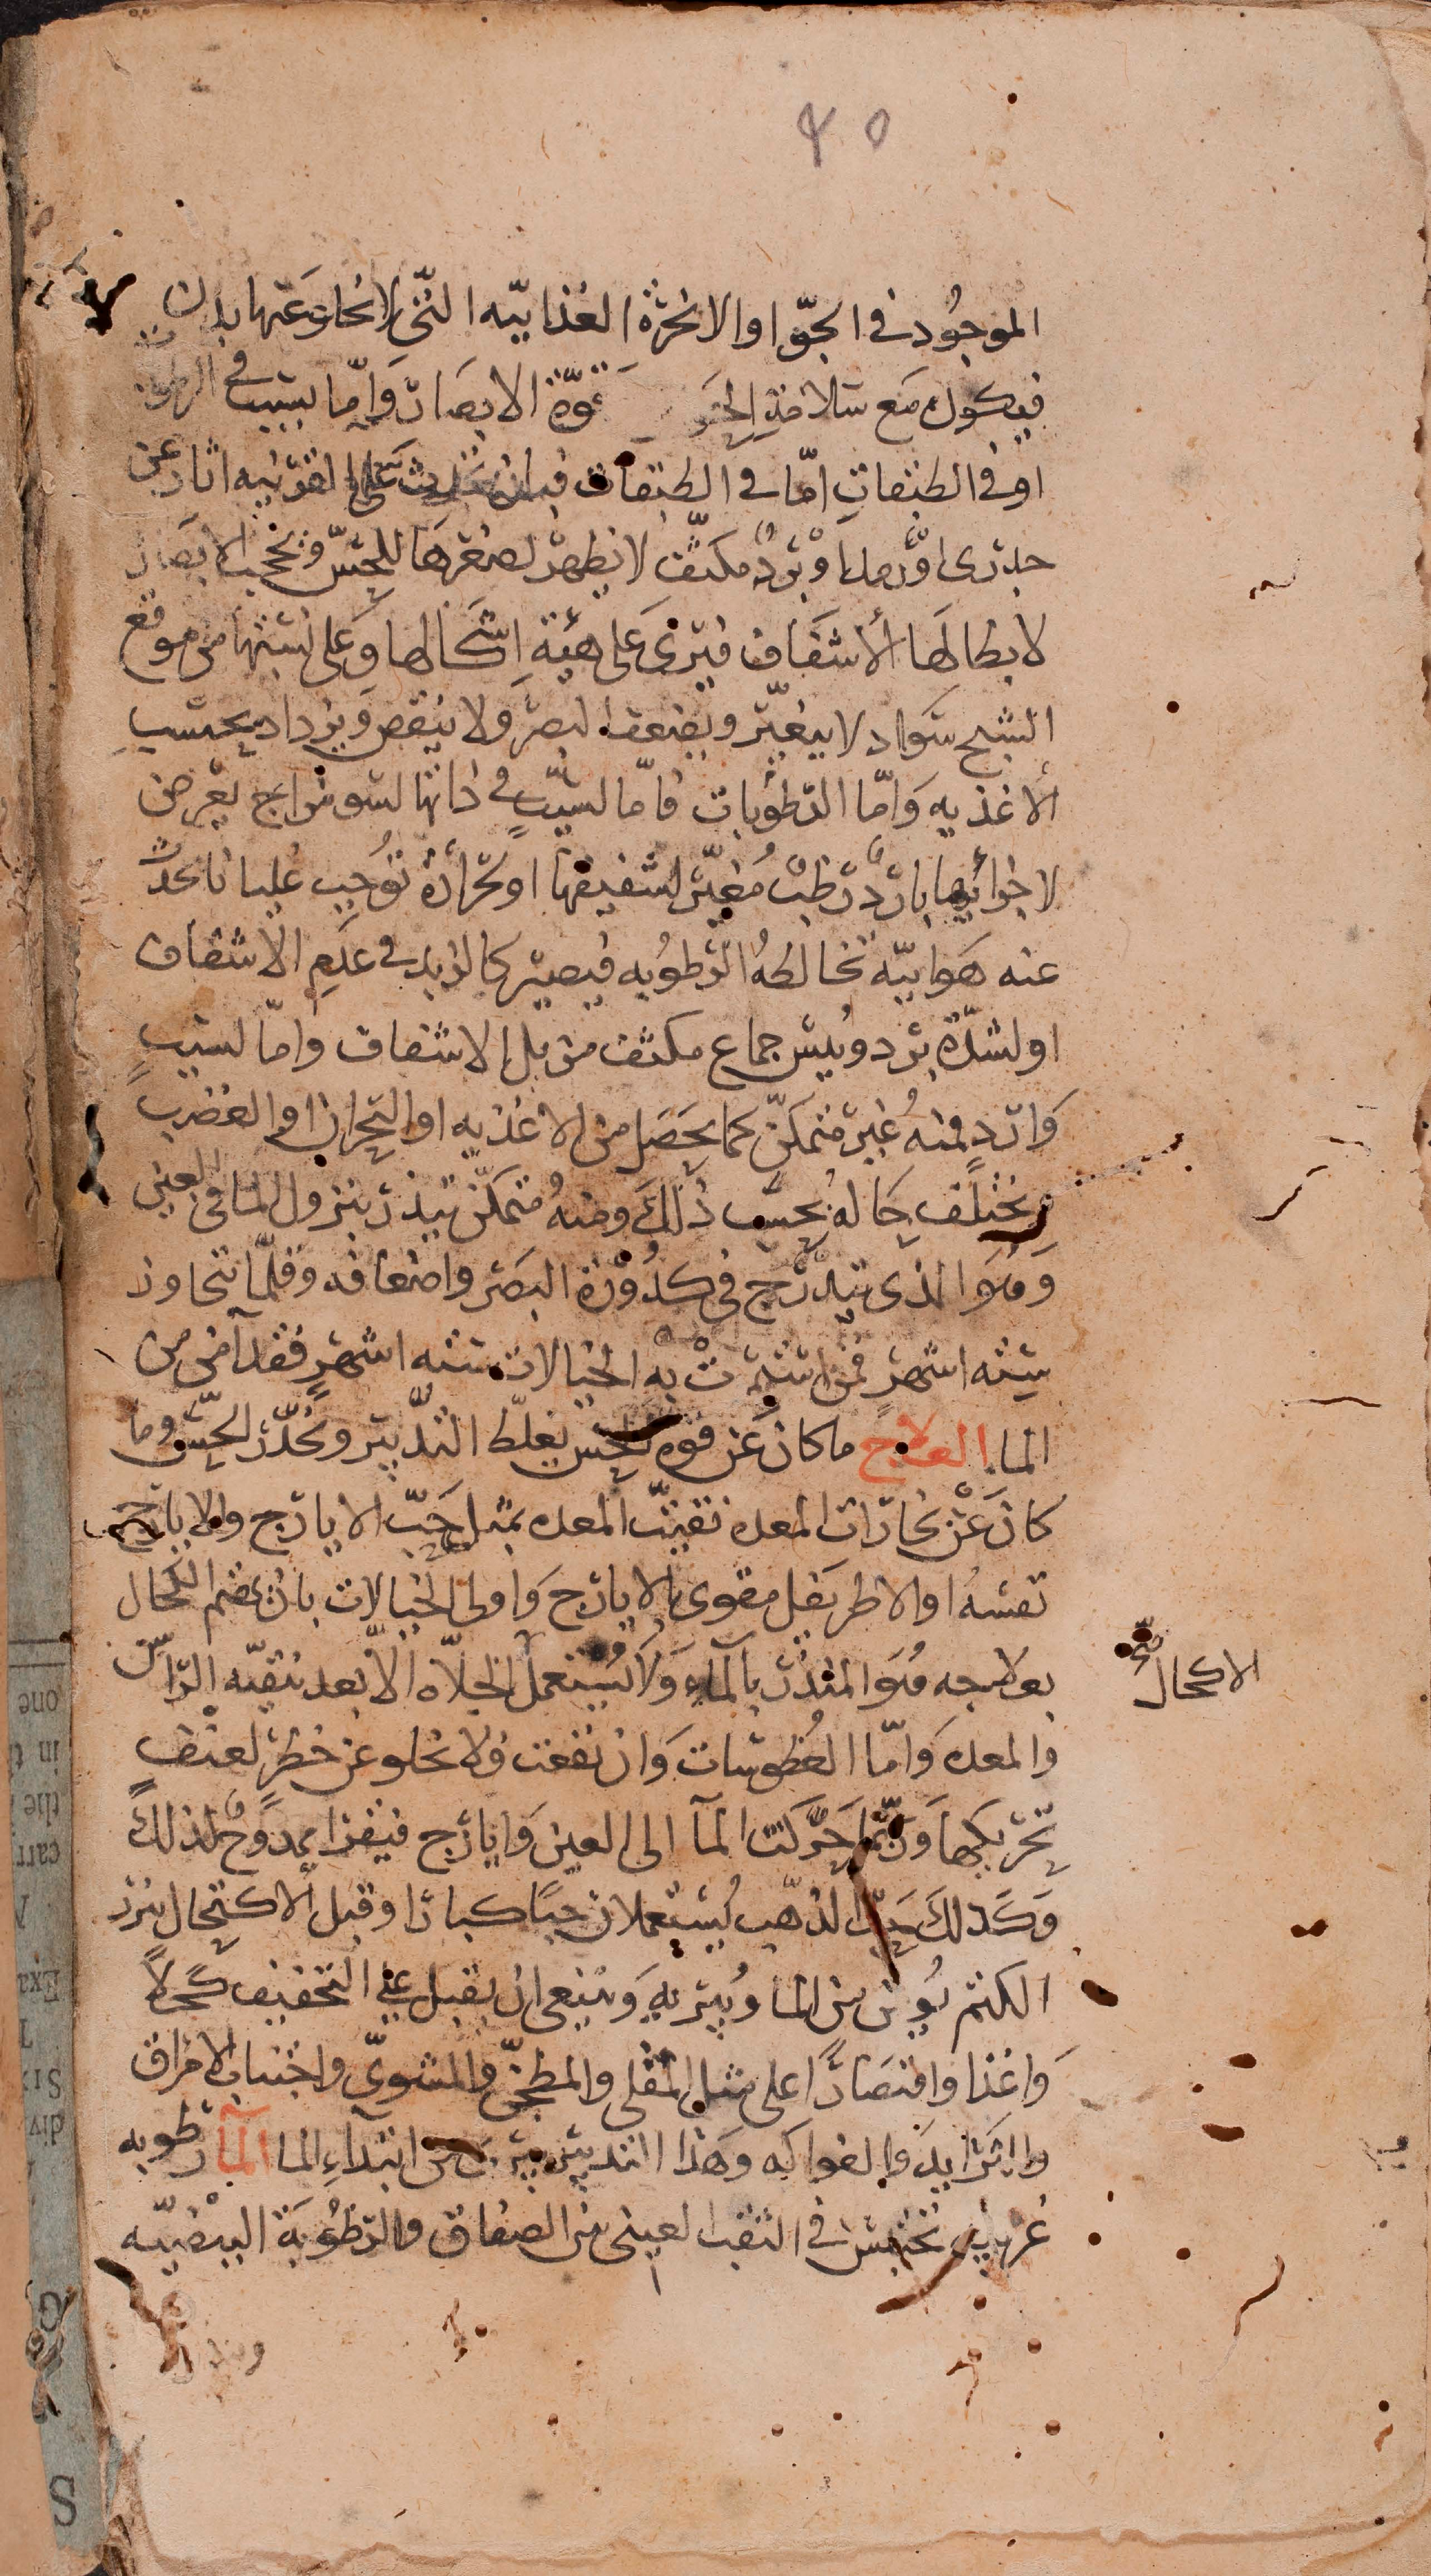 ٤٥
الموجُود في الجوّ او الابخرة الغذاييّه التّي لا يخلو عنها بدن
فيكون مع سلامة قوّة الابصار وامّا بسبب في الرطوبات
او في الطبقات امّا في الطبقات فبان على القرنيه اثار عن
جدرى او رمد او برد مكثّف لا يظهر لصغرها للحسّ ويحجب الابصار
لابطالها الاشفاف فيرى على هيئة اشكالها وعلى نسبتها من موقع
الشبح سواد لا يتغيّر ويضعف البصر ولا ينقص ويزداد بحسب
الاغذيه وامّا الرّطوبات فامّا لسبب في ذاتها لسو مزاج يعرض
لاجزائها بارد رطب مُغيّر لشفيفها او حرارة تُوجب غليانا يحدث
عنه هوائيّه تخالطه الرّطوبه فيصير كالزبد في عدم الاشفاف
او لشدّة برد ويبس جماع مكثف مزيل الاشفاف وامّا لسبب
وارد فمنه غير متمكّن كما يحصل من الاغذيه او البحران او الغضب
ويختلف حاله بحسب ذلك ومنه متمكّن ينذر بنزول الما في العين
وهو الذى يتدرّج في كدورة البصر واضعافه وقلّما تتجاوز
ستّه اشهر فمن استمرت به الخيالات ستّه اشهر فقد آمن من
الما العلاج ما كان عن قوه الحسّ يغلّظ التّدبير ويخدّر الحسّ وما
كان عن بخارات المعده نقيت المعده بمثل حبّ الايارج والايارج
نفسه او الاطريفل مقوى بالايارج واولى الخيالات بان يهتم الكحال
الاكحال صح
بعلاجه هو المنذر بالماء ولا يُستعمل الجلاه الاّ بعد تنقيه الرّاس
والمعده وامّا العطوسات وان نفعت فلا تخلو عن خطر لعنف
تحريكها وربّما حرّكت المآ الى العين وايارج فيقرا ممدوح لذلك
وكذلك حبّ الذّهب يُستعملان حبًا كبارًا وقبل الاكتحال بزر
الكتم يؤمن من الما ويبرى به وينبغى ان يقبل على التخفيف كحلًا
وغذا واقتصارًا على مثل المقلى والمطجّن والمشوىّ واجتناب الامراق
والثرايد والفواكه وهذا التدبير يبرى من ابتداء الما المآ رطوبه
غريبه تحتبس في الثقب العينى بين الصفاق والرّطوبة البيضيّه